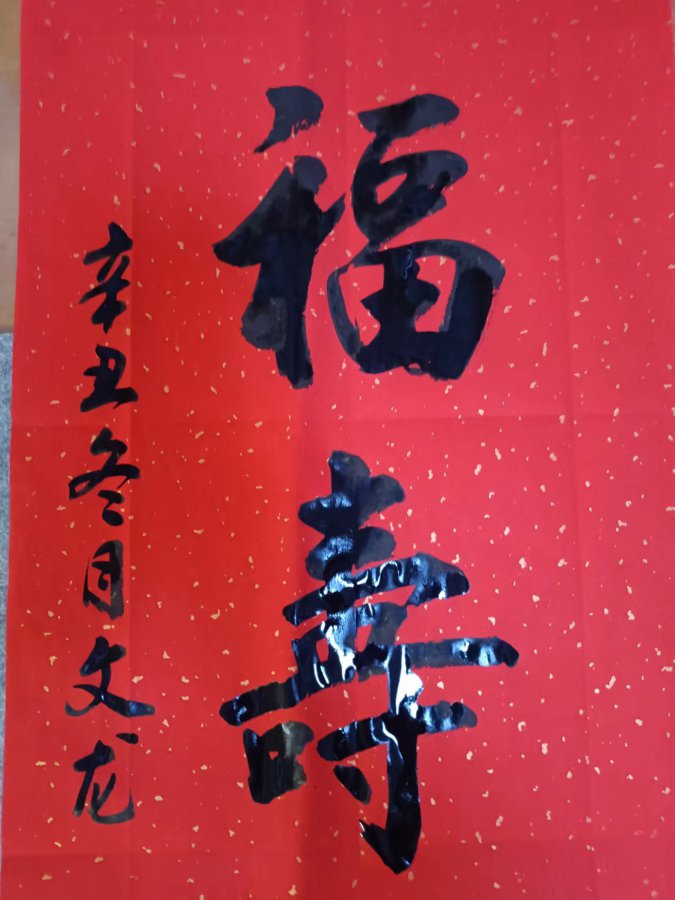 福壽
辛丑冬月文龙